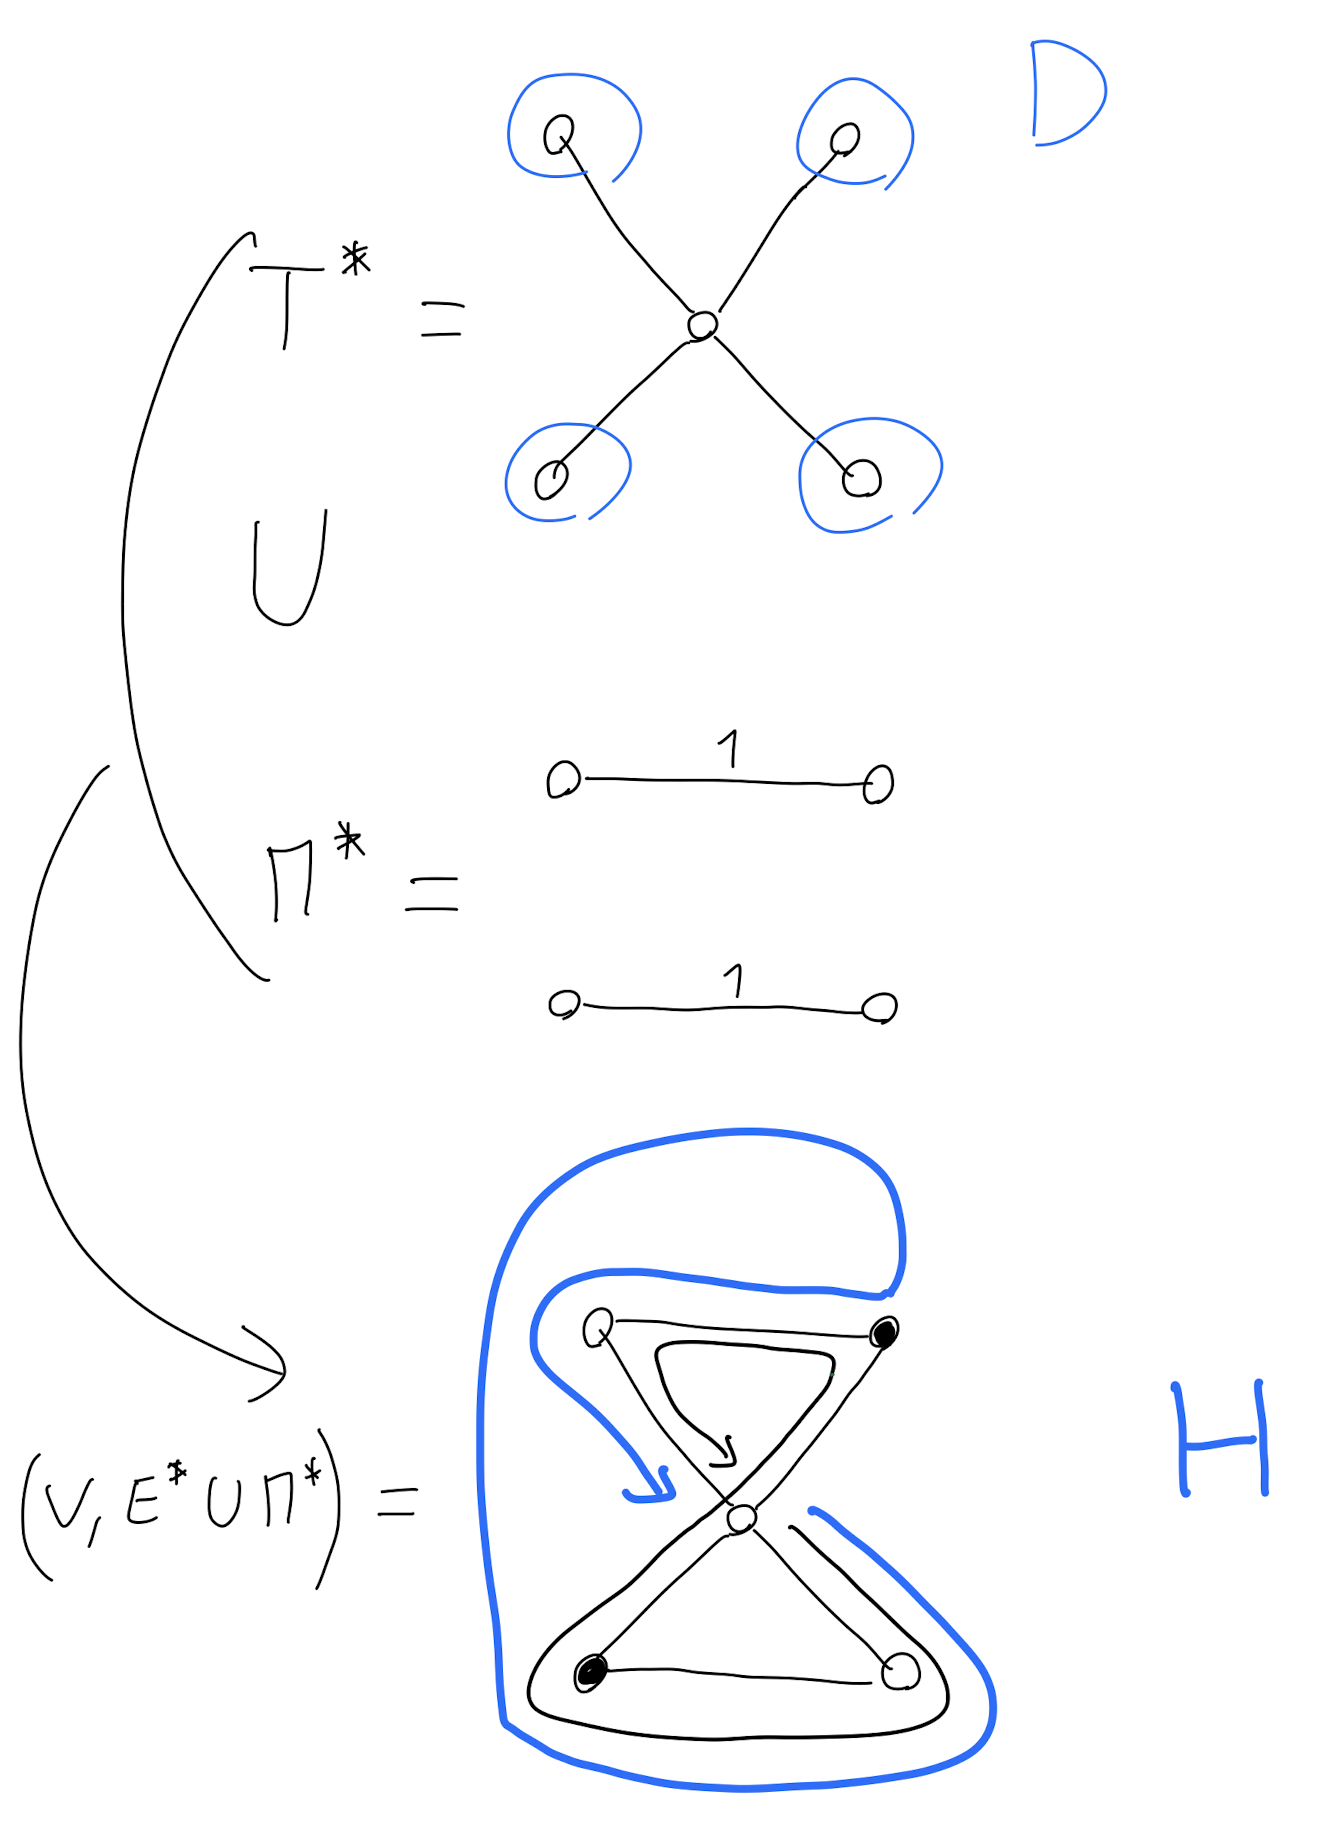 D
T* =
∪
1
Π* =
1
(V, E* ∪ Π*) =
H